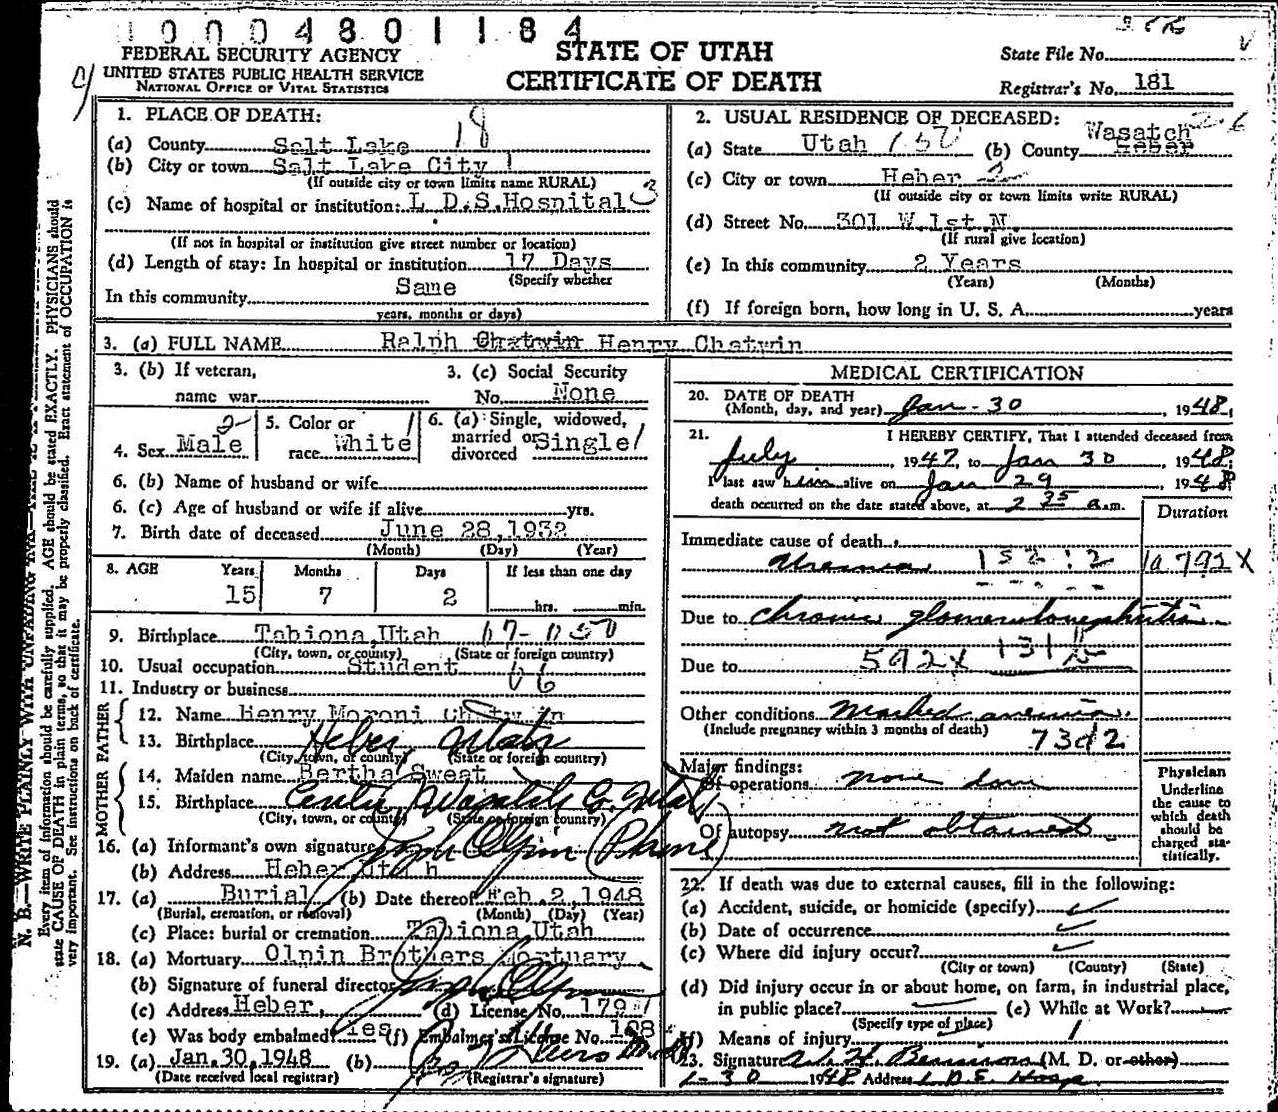 1 0 0 0 4 8 0 1 1 8 4
FEDERAL SECURITY AGENCY
UNITED STATES PUBLIC HEALTH SERVICE
NATIONAL OFFICE OF VITAL STATISTICS
STATE OF UTAH
CERTIFICATE OF DEATH
State File No.
Registrar's No. 181
N. B.—WRITE PLAINLY WITH UNFADING INK
Every item of information should be carefully supplied. AGE should be stated EXACTLY. PHYSICIANS should
state CAUSE OF DEATH in plain terms, so that it may be properly classified. Exact statement of OCCUPATION is
very important. See instructions on back of certificate.
1. PLACE OF DEATH: 18
(a) County Salt Lake
(b) City or town Salt Lake City 1
(If outside city or town limits name RURAL)
(c) Name of hospital or institution: L D.S.Hospital 3
(If not in hospital or institution give street number or location)
(d) Length of stay: In hospital or institution 17 Days
(Specify whether
In this community Same
years, months or days)
2. USUAL RESIDENCE OF DECEASED:
(a) State Utah (b) County Wasatch Heber
(c) City or town Heber 2
(If outside city or town limits write RURAL)
(d) Street No. 301 W.1st.N.
(If rural give location)
(e) In this community 2 Years
(Years) (Months)
(f) If foreign born, how long in U. S. A. years
3. (a) FULL NAME Ralph Chatwin Henry Chatwin
3. (b) If veteran,
name war
3. (c) Social Security
No. None
4. Sex Male 2
5. Color or
race White 1
6. (a) Single, widowed,
married or
divorced Single 1
6. (b) Name of husband or wife
6. (c) Age of husband or wife if alive yrs.
7. Birth date of deceased June 28,1932
(Month) (Day) (Year)
8. AGE Years Months Days If less than one day
15 7 2 hrs. min.
9. Birthplace Tabiona,Utah
(City, town, or county) (State or foreign country)
10. Usual occupation Student
11. Industry or business
FATHER
12. Name Henry Moroni Chatwin
13. Birthplace Heber Utah
(City, town, or county) (State or foreign country)
MOTHER
14. Maiden name Bertha Sweat
15. Birthplace Center Wasatch Co. Utah
(City, town, or county) (State or foreign country)
16. (a) Informant's own signature Joseph Olpin (Phone)
(b) Address Heber Utah
17. (a) Burial (b) Date thereof Feb.2,1948
(Burial, cremation, or removal) (Month) (Day) (Year)
(c) Place: burial or cremation Tabiona Utah
18. (a) Mortuary Olpin Brothers Mortuary
(b) Signature of funeral director Joseph Olpin
(c) Address Heber, (d) License No. 179
(e) Was body embalmed? Yes (f) Embalmer's License No. 198
19. (a) Jan.30,1948 (b)
(Date received local registrar) (Registrar's signature)
MEDICAL CERTIFICATION
20. DATE OF DEATH
(Month, day, and year) Jan - 30, 1948;
21. I HEREBY CERTIFY, That I attended deceased from
July, 1947, to Jan 30, 1948;
I last saw him alive on Jan 29 1948;
death occurred on the date stated above, at 2 35 a.m.
Duration
Immediate cause of death
Uremia 792 X
Due to chronic glomerulonephritis
Due to 592X 131
Other conditions Marked anemia.
(Include pregnancy within 3 months of death)
Major findings:
Of operations none done
Of autopsy not obtained
Physician
Underline
the cause to
which death
should be
charged sta-
tistically.
22. If death was due to external causes, fill in the following:
(a) Accident, suicide, or homicide (specify)
(b) Date of occurrence
(c) Where did injury occur?
(City or town) (County) (State)
(d) Did injury occur in or about home, on farm, in industrial place,
in public place? (e) While at Work?
(Specify type of place)
(f) Means of injury
23. Signature (M. D. or other)
1-30 1948 Address L.D.S. Hosp.